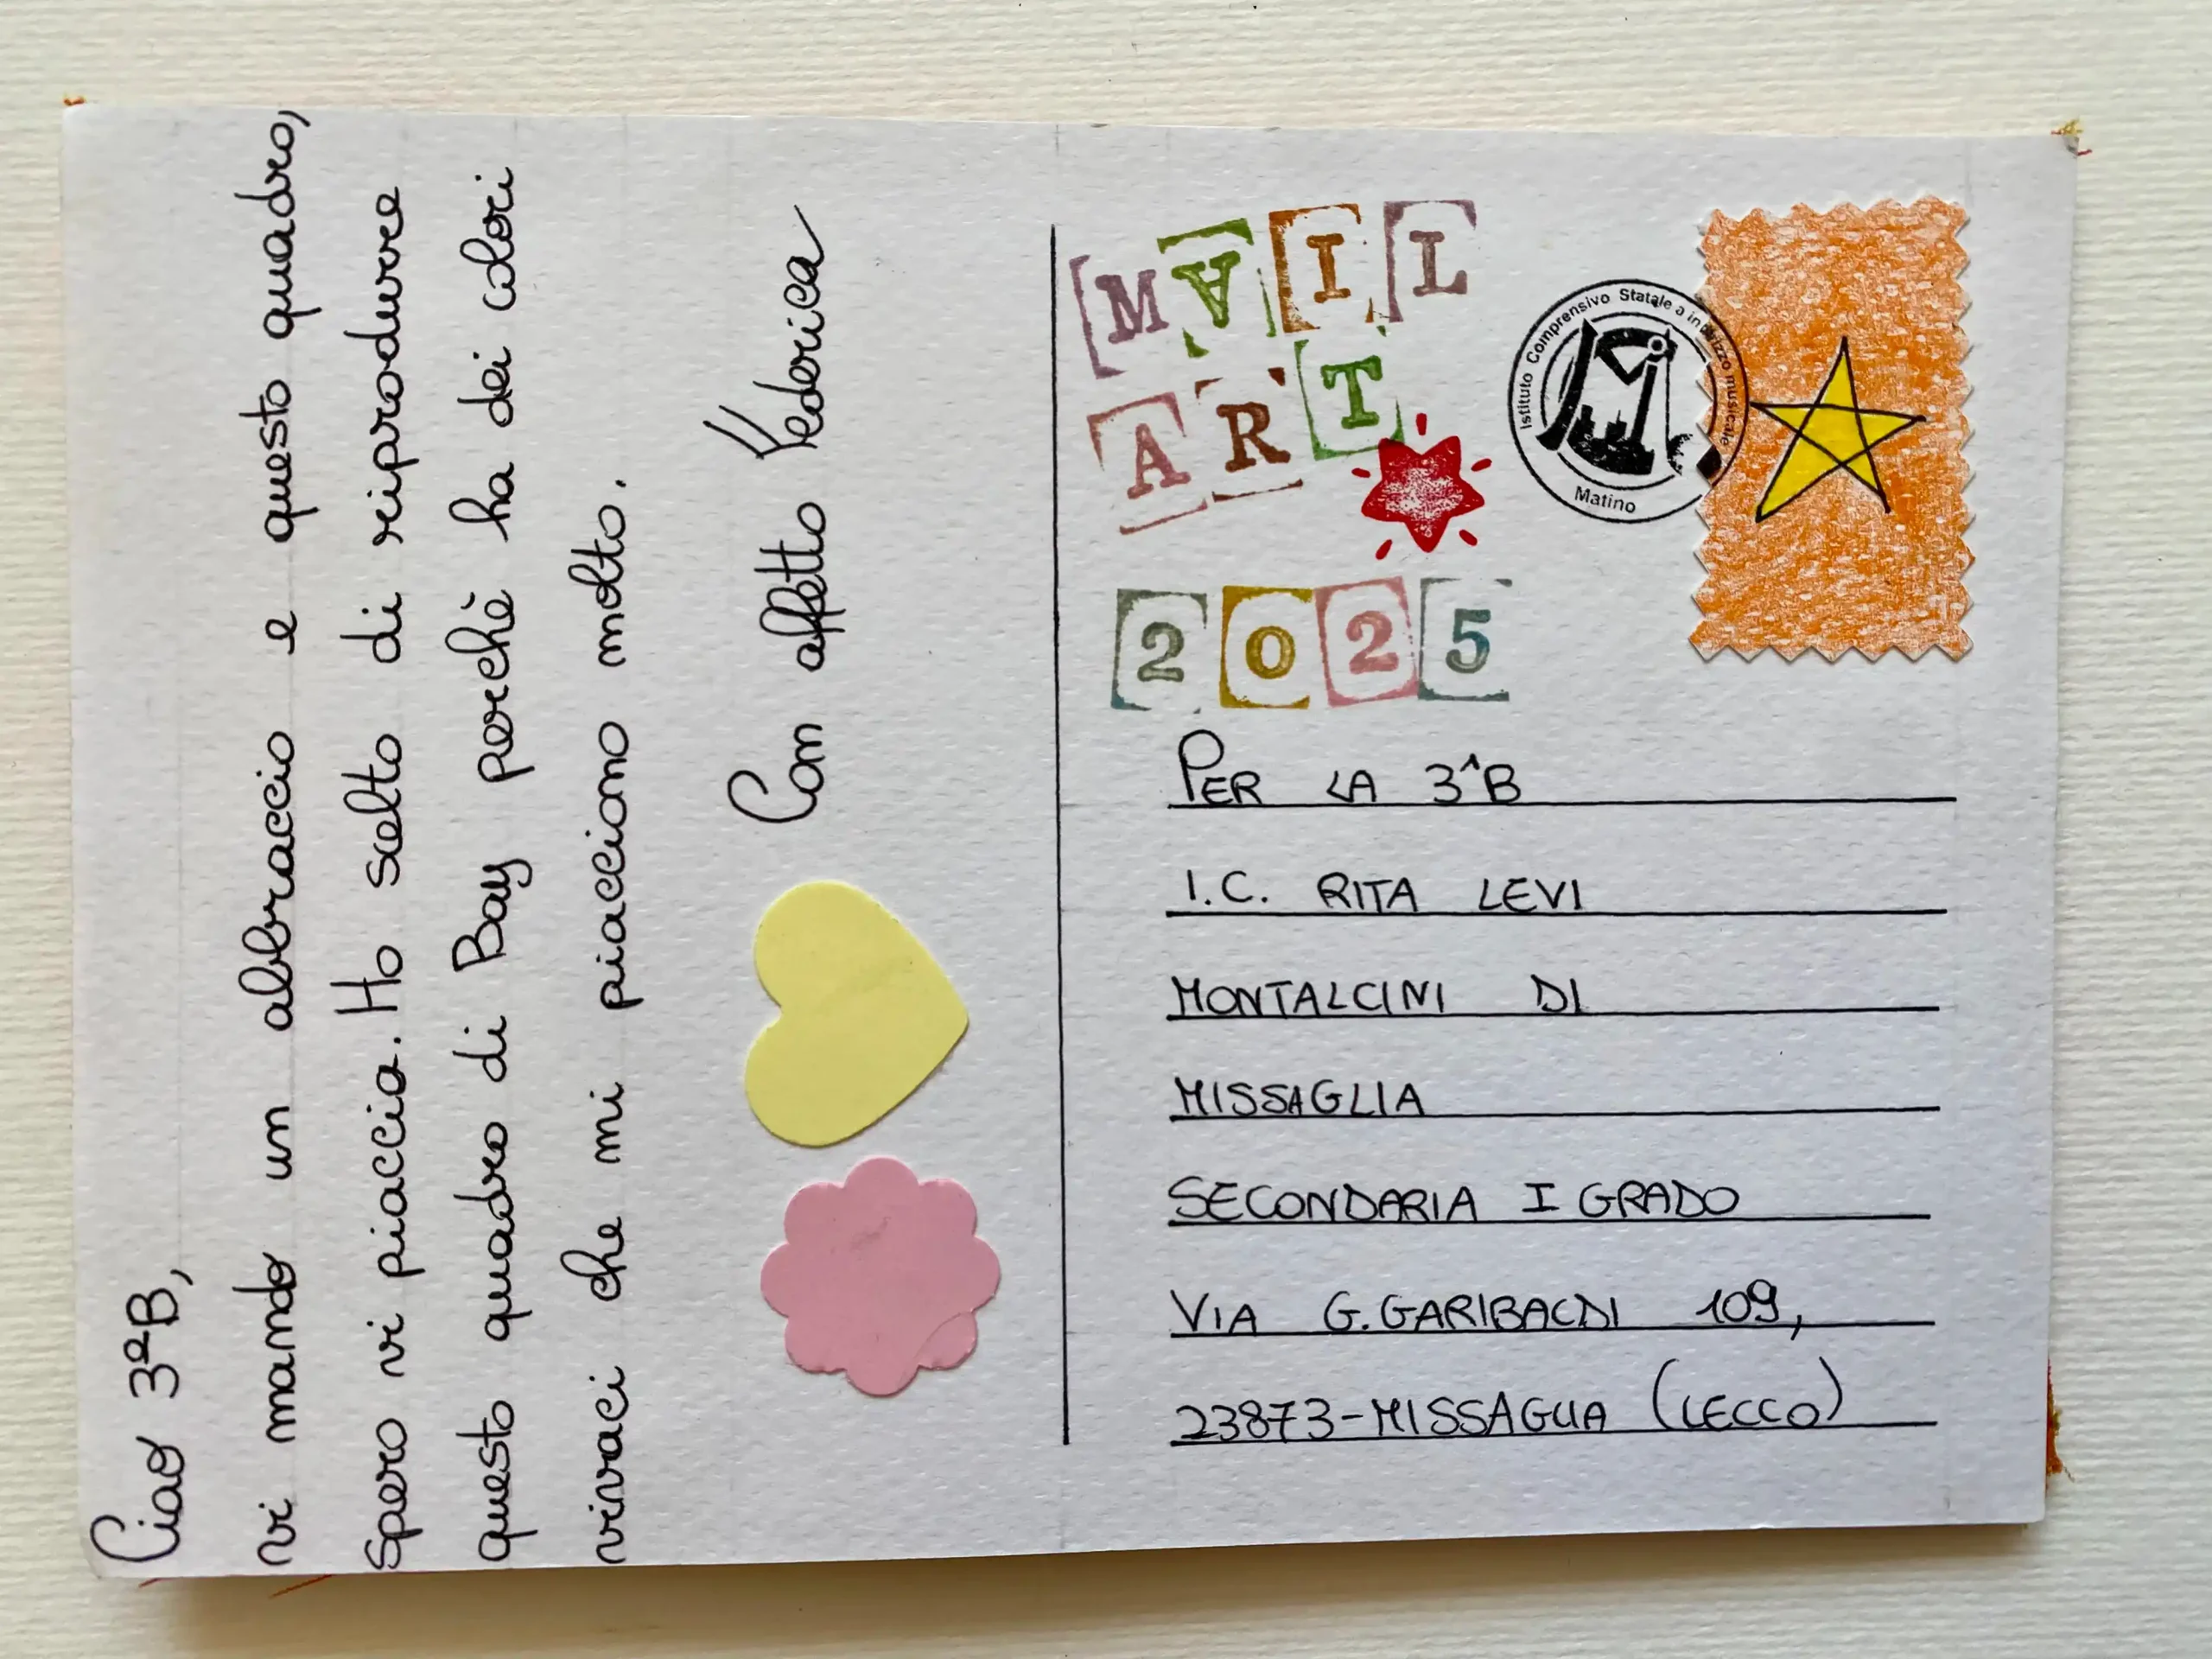 Ciao 3ªB,
vi mando un abbraccio e questo quadro,
spero vi piaccia. Ho scelto di riprodurre
questo quadro di Bay perchè ha dei colori
vivaci che mi piacciono molto.
Con affetto Federica
MAIL
ART
2025
Istituto Comprensivo Statale a indirizzo musicale
Matino
PER LA 3^B
I.C. RITA LEVI
MONTALCINI DI
MISSAGLIA
SECONDARIA I GRADO
VIA G.GARIBALDI 109,
23873-MISSAGLIA (LECCO)